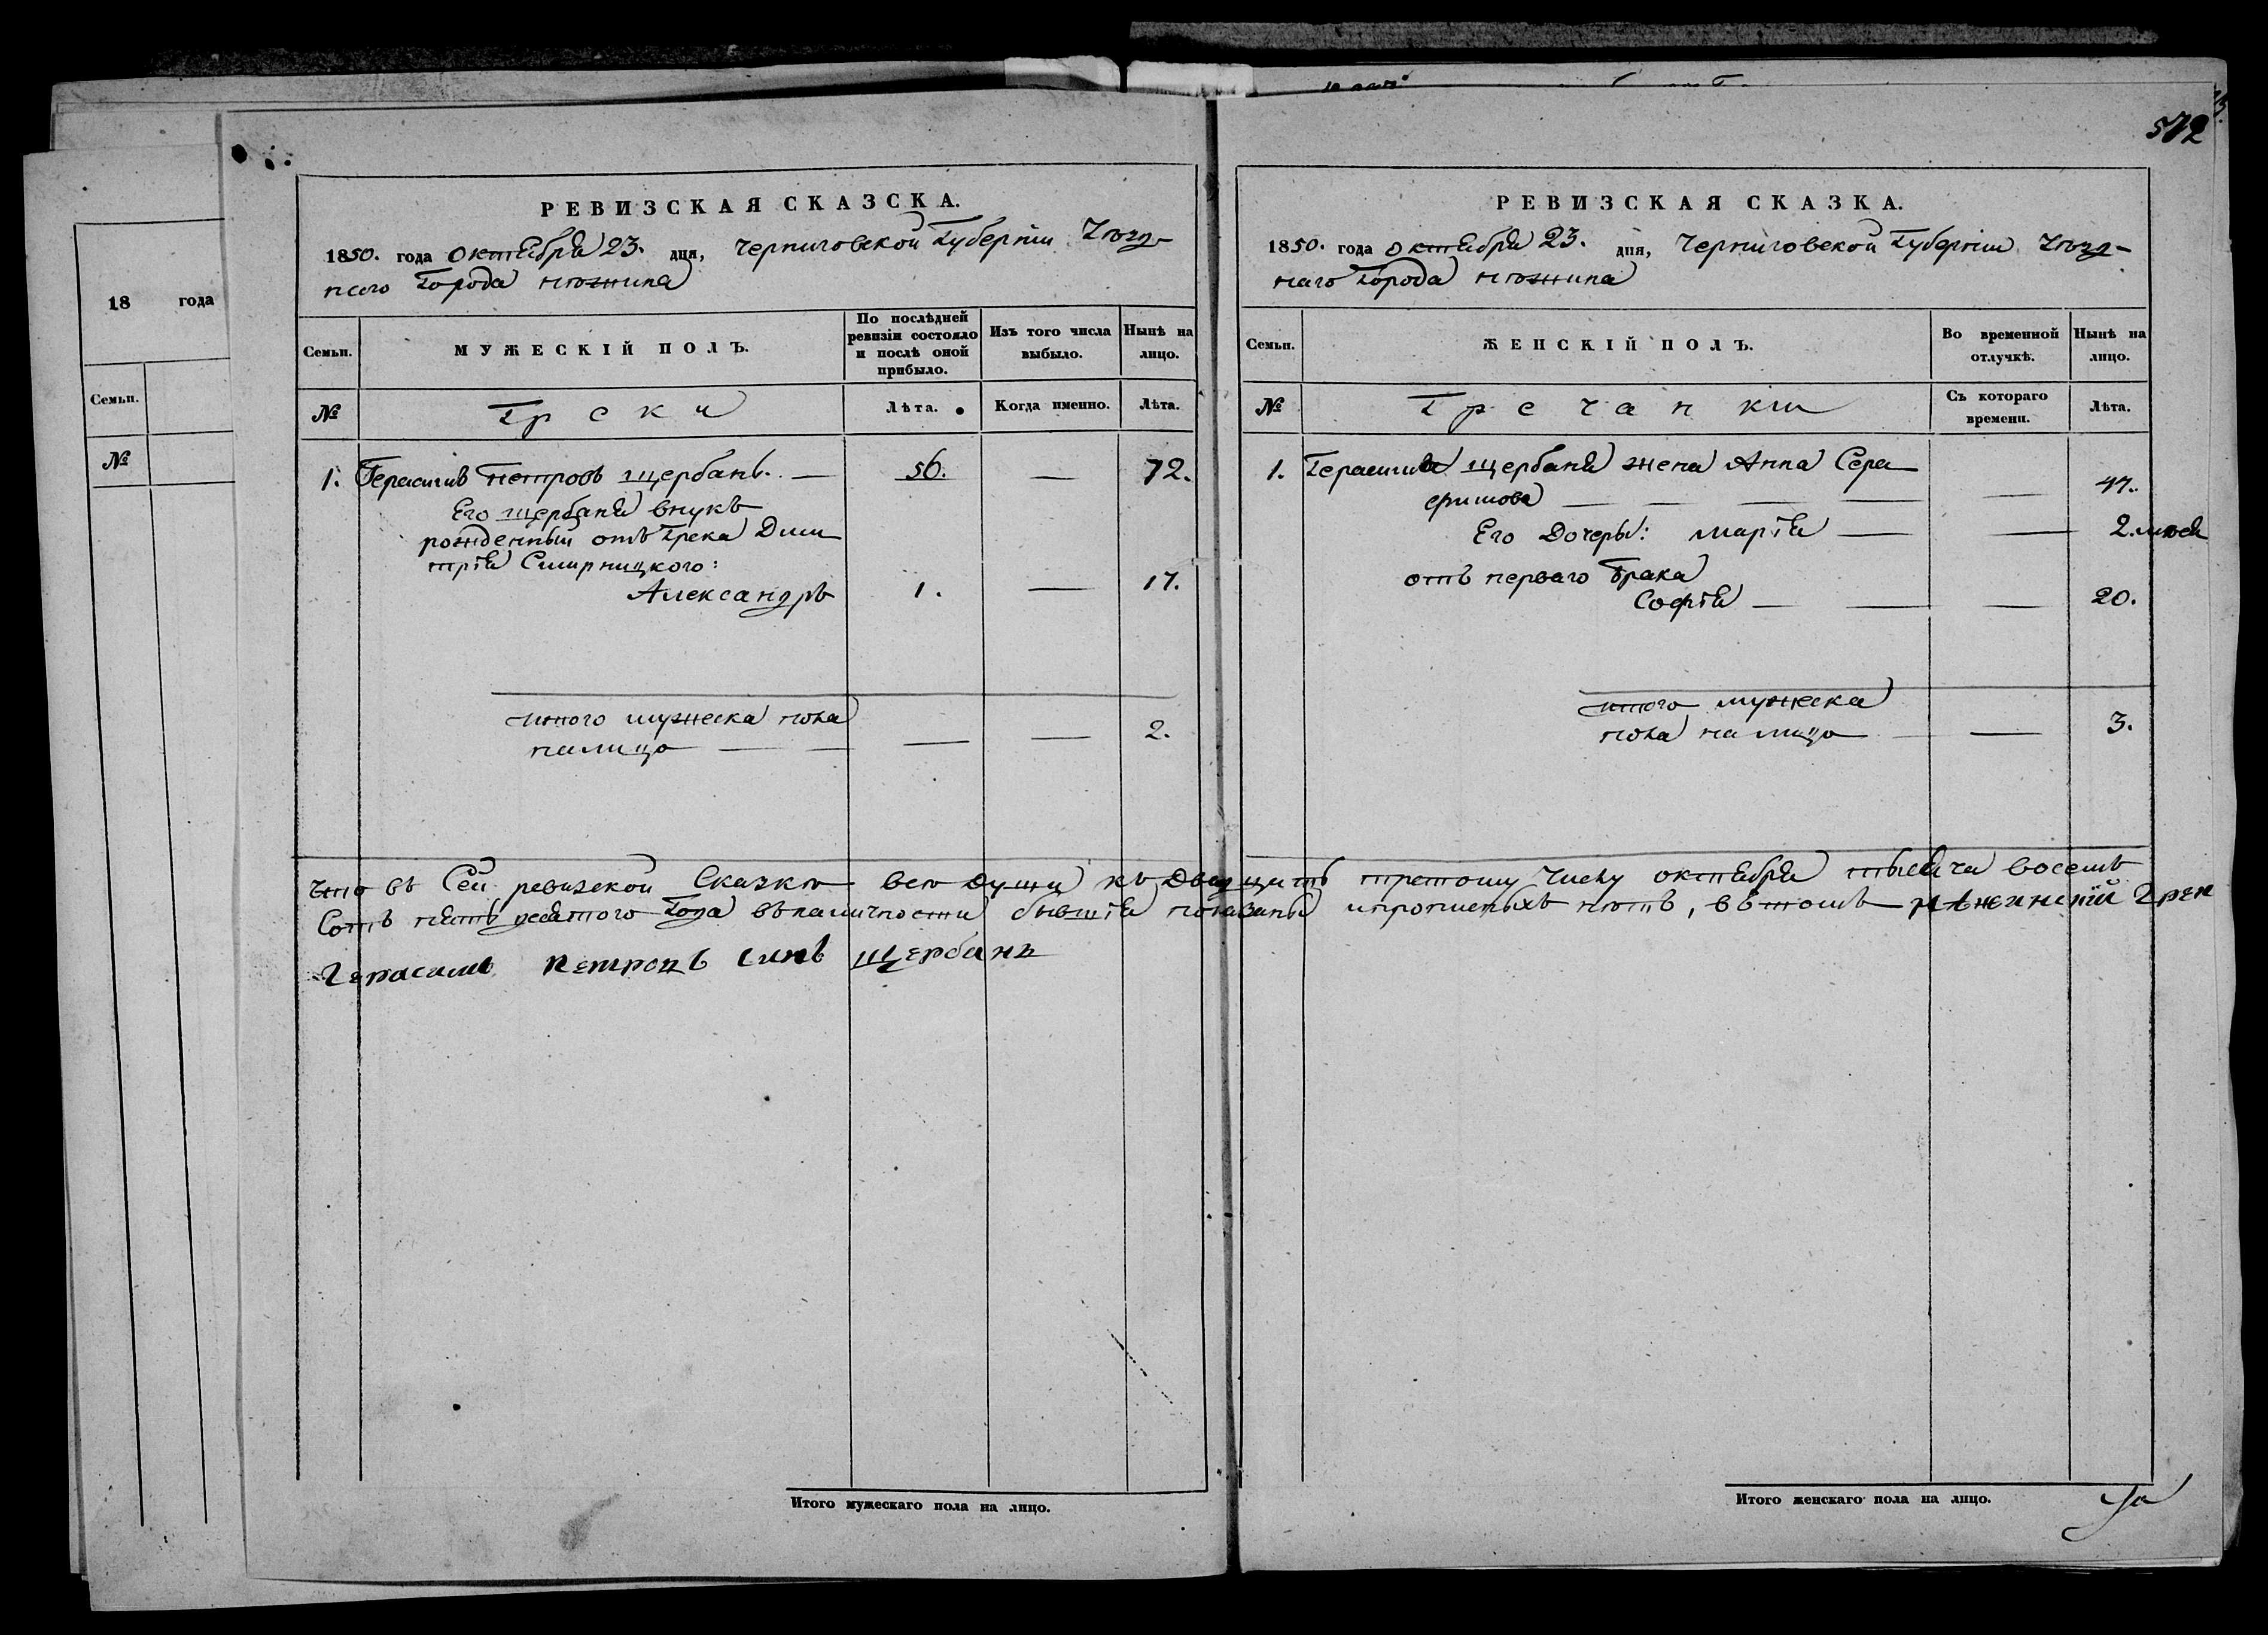 572
18 года
Семьи.
№
РЕВИЗСКАЯ СКАЗСКА.
1850. года октября 23. дня, Черниговской Губерніи Уѣзд-
наго Города Нѣжина
Семьи.
МУЖЕСКІЙ ПОЛЪ.
По послѣдней ревизіи состояло и послѣ оной прибыло.
Изъ того числа выбыло.
Нынѣ на лицо.
№
Греки
Лѣта.
Когда именно.
Лѣта.
1. Герасимъ Петровъ Щербань. — 56. — 72.
Его Щербаня внукъ
рожденный отъ Грека Дми
трія Смирницкого:
Александръ 1. — 17.
Итого мужеска пола
налицо — — — — 2.
Итого мужескаго пола на лицо.
РЕВИЗСКАЯ СКАЗКА.
1850. года октября 23. дня, Черниговской Губерніи Уѣзд-
наго Города Нѣжина
Семьи.
ЖЕНСКІЙ ПОЛЪ.
Во временной отлучкѣ.
Нынѣ на лицо.
№
Гречанки
Съ котораго времени.
Лѣта.
1. Герасима Щербаня жена Анна Сера
фимова — — — — 47.
Его Дочеры: Марія — — 2. мѣся
отъ перваго брака
Софія — — — 20.
Итого мужеска
пола на лицо — — 3.
Что въ Сей ревизской Сказкѣ всѣ души къ двадцать третому числу октября тысяча восемъ
Сотъ пять десятого Года въ наличности бывшія показаны и прописныхъ нѣтъ, въ томъ нѣженскій Грек
Герасимъ Петровъ Синъ Щербань
Итого женскаго пола на лицо.